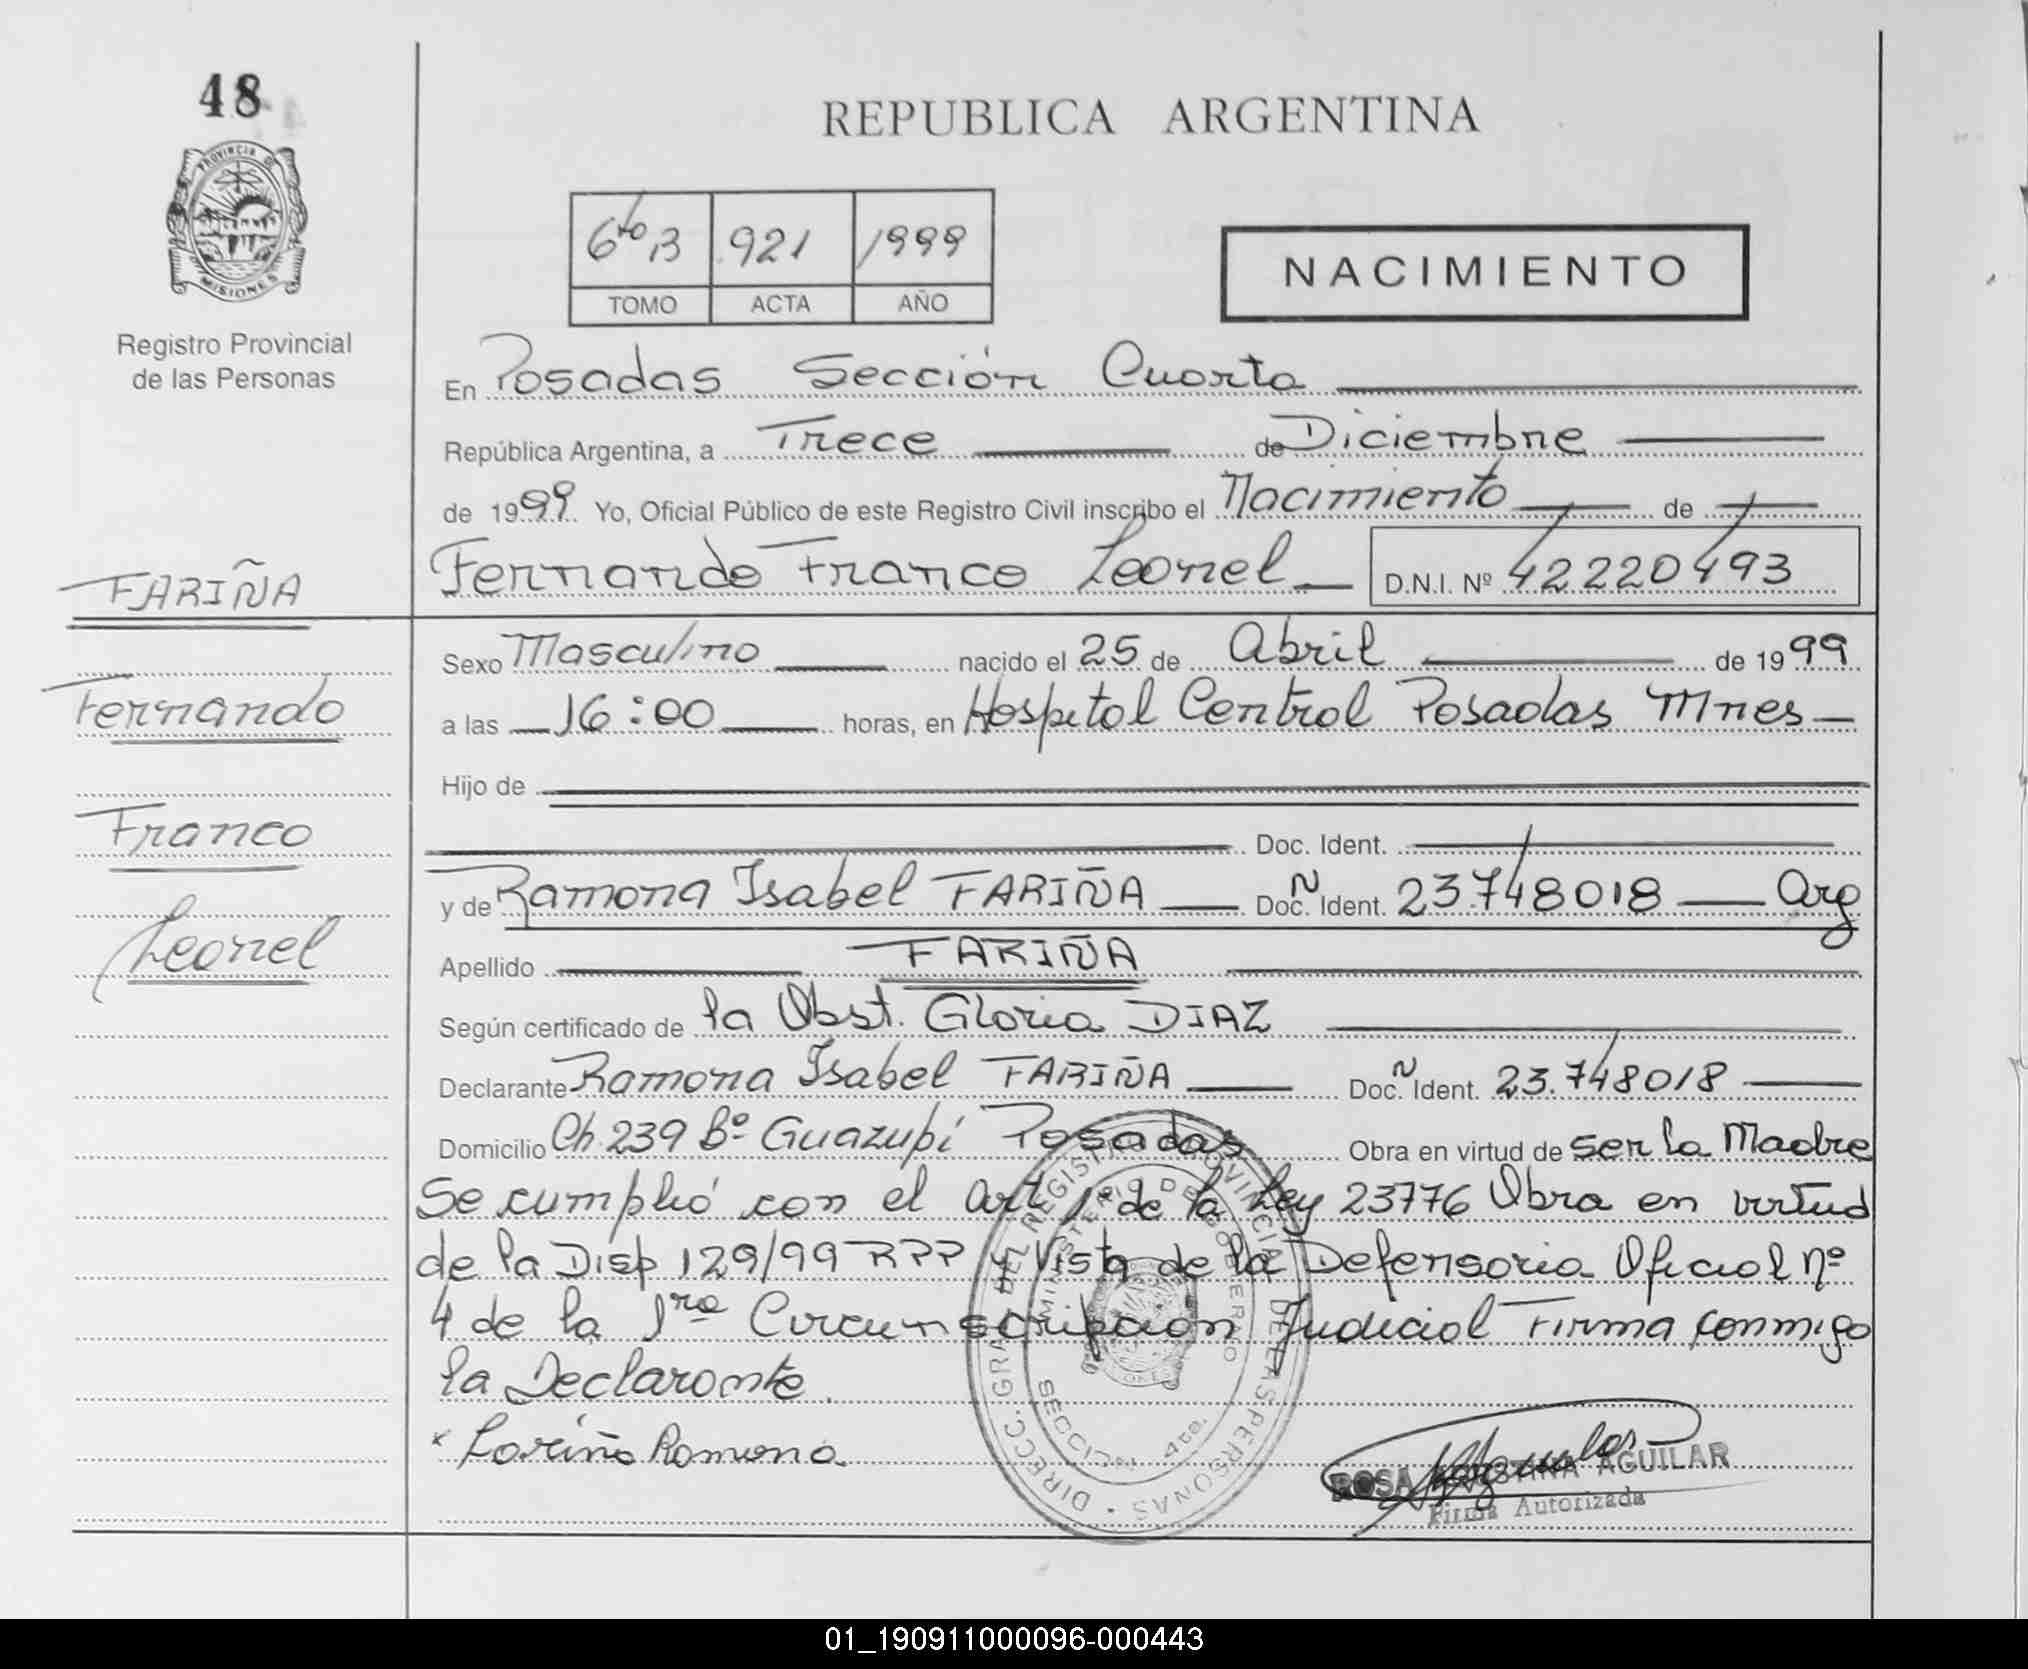 48
PROVINCIA DE
MISIONES
Registro Provincial
de las Personas
REPUBLICA ARGENTINA
6to B 921 1999
TOMO ACTA AÑO
NACIMIENTO
En Posadas Sección Cuarta
República Argentina, a Trece de Diciembre
de 1999 Yo, Oficial Público de este Registro Civil inscribo el Nacimiento de
FARIÑA
Fernando Franco Leonel D.N.I. Nº 42220493
Sexo Masculino nacido el 25 de Abril de 1999
Fernando
a las 16:00 horas, en Hospital Central Posadas Mnes
Hijo de
Franco
Doc. Ident.
y de Ramona Isabel FARIÑA Doc. N Ident. 23.748018 Arg
Leonel
Apellido FARIÑA
Según certificado de la Obst. Gloria DIAZ
Declarante Ramona Isabel FARIÑA Doc. N Ident. 23.748018
Domicilio Ch. 239 Bº Guazupi Posadas Obra en virtud de ser la Madre
Se cumplió con el art 1º de la Ley 23776 Obra en virtud
de la Disp 129/99 RPP y Vista de la Defensoria Oficial Nº
4 de la 1ra Circunscripcion Judicial Firma conmigo
la Declarante.
x Fariña Ramona
DIRECC. GRAL DEL REGISTRO PROVINCIAL DE LAS PERSONAS
MINISTERIO DE GOBIERNO
SECCION 4ta.
ROSA AGUILAR
Firma Autorizada
01_190911000096-000443